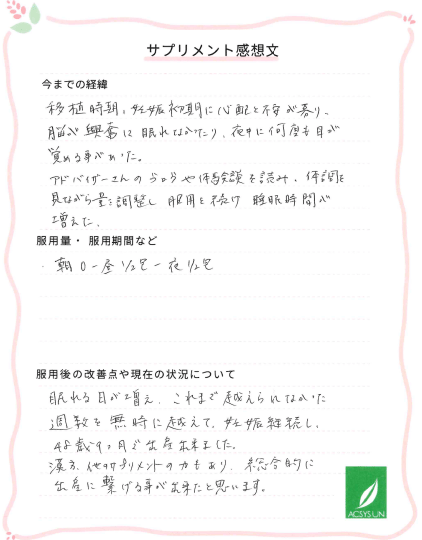 サプリメント感想文
今までの経緯
移植時期、妊娠初期に心配と不安が募り、
脳が興奮し眠れなかったり、夜中に何度も目が
覚める事があった。
アドバイザーさんの
や体験談を読み、体調を
見ながら量を調整し服用を続け睡眠時間が
増えた。
服用量・服用期間など
・朝0-昼1/2包-夜1/2包
服用後の改善点や現在の状況について
眠れる日が増え、これまで越えられなかった
週数を無時に越えて、妊娠継続し、
48歳9ヶ月で出産出来ました。
漢方、他サプリメントの力もあり、総合的に
出産に繋げる事が出来たと思います。
ACSYSUN